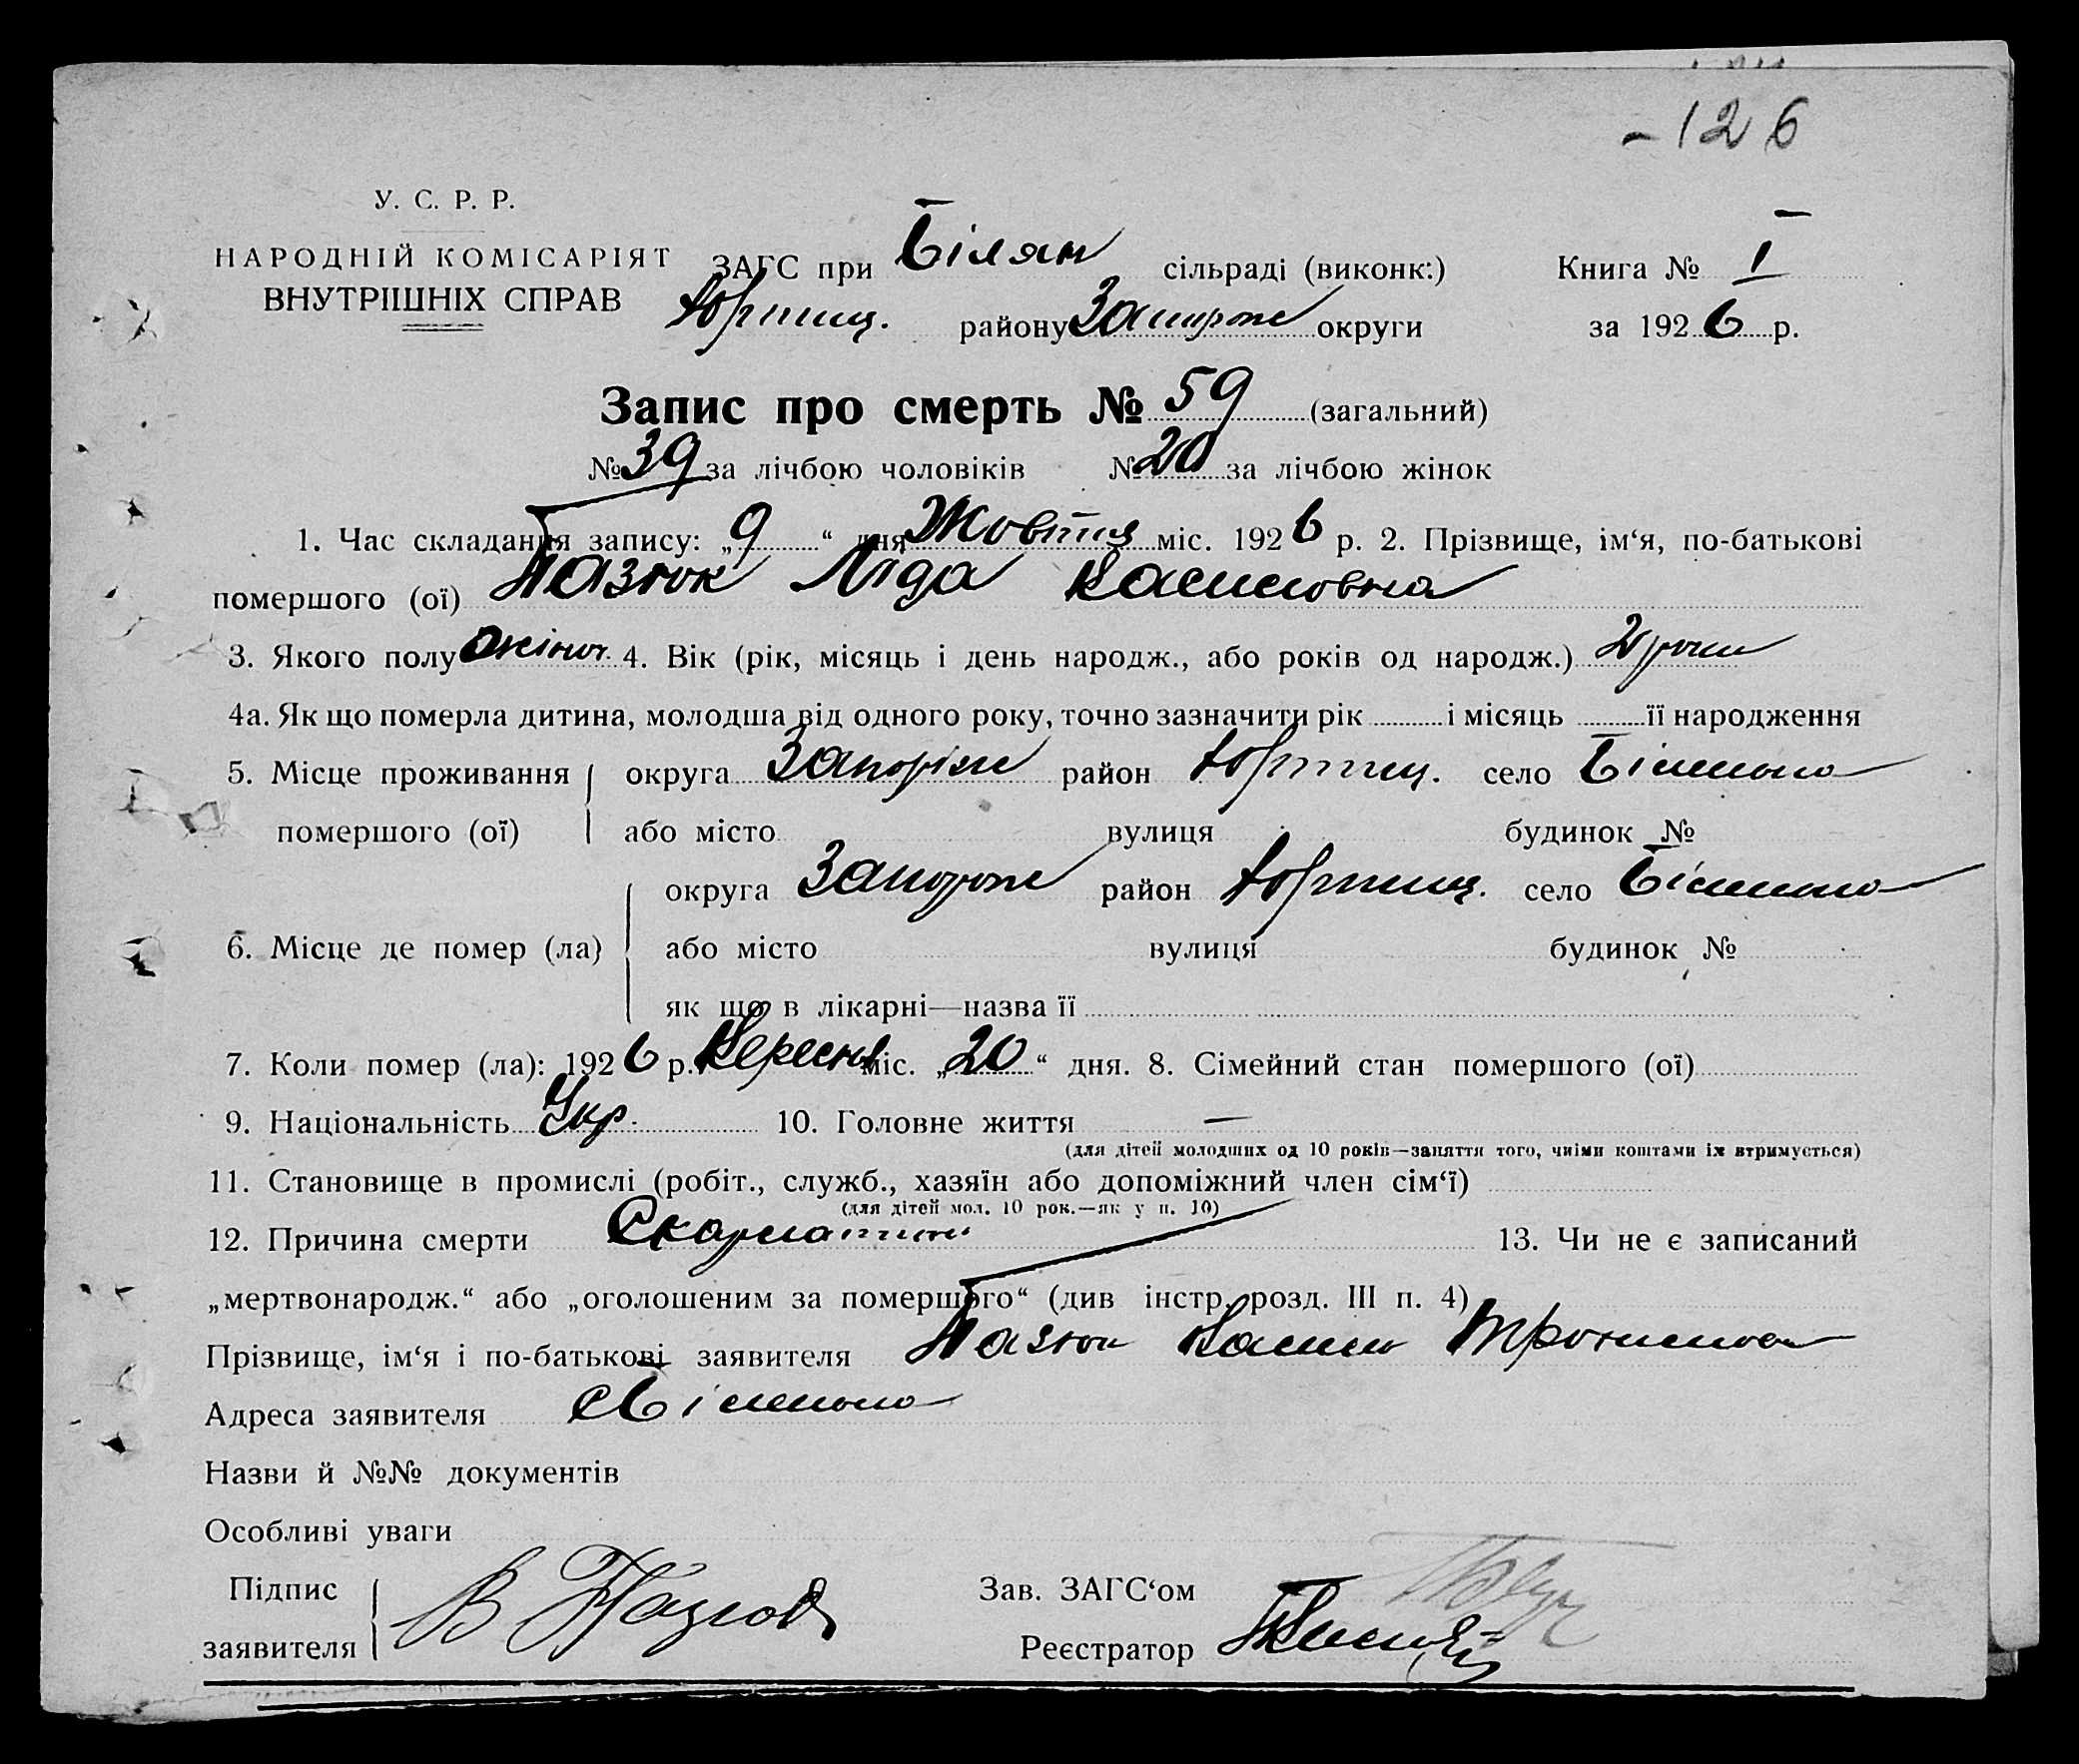 -126
У. С. Р. Р.
НАРОДНІЙ КОМІСАРІЯТ
ВНУТРІШНІХ СПРАВ
ЗАГС при Білян сільраді (виконк.) Книга № I
Хортиц. району Запорож округи за 1926 р.
Запис про смерть № 59 (загальний)
№ 39 за лічбою чоловіків № 20 за лічбою жінок
1. Час складання запису: „9“ дня Жовтня міс. 1926 р. 2. Прізвище, ім‘я, по-батькові
помершого (ої) Пазюк Ліда
3. Якого полу жіноч. 4. Вік (рік, місяць і день народж., або років од народж.) 2 роки
4а. Як що померла дитина, молодша від одного року, точно зазначити рік і місяць її народження
5. Місце проживання округа Запоріж район Хортиц. село
помершого (ої) або місто вулиця будинок №
округа Запорож район Хортиц. село
6. Місце де помер (ла) або місто вулиця будинок №
як що в лікарні—назва її
7. Коли помер (ла): 1926 р. Вересня міс. „20“ дня. 8. Сімейний стан помершого (ої)
9. Національність Укр. 10. Головне життя —
(для дітей молодших од 10 років—заняття того, чиїми коштами їх втримується)
11. Становище в промислі (робіт., служб., хазяїн або допоміжний член сім‘ї)
(для дітей мол. 10 рок.—як у п. 10)
12. Причина смерти Скарлатина 13. Чи не є записаний
„мертвонародж.“ або „оголошеним за помершого“ (див інстр. розд. III п. 4)
Прізвище, ім‘я і по-батькові заявителя Пазюк
Адреса заявителя
Назви й №№ документів
Особливі уваги
Підпис Зав. ЗАГС‘ом
заявителя В Реєстратор